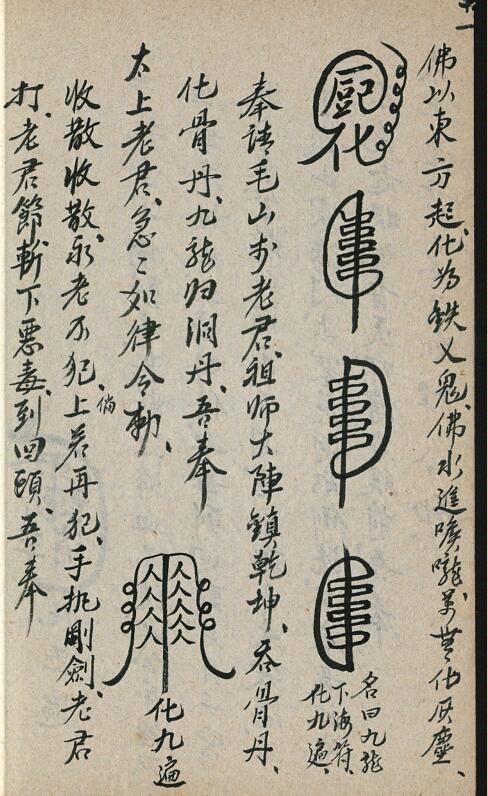 十一
佛以東方起、化為鉄乂鬼、佛水進喉嚨、萬世化灰塵、
化
名曰九龍
下海符、
化九遍、
奉請毛山步老君、祖师大陣鎮乾坤、吞骨丹、
化骨丹、九龍归洞丹、吾奉
太上老君、急〻如律令勅、
化九遍
收散收散、永老不犯、上若再犯、手执剛劍、老君
倘
打、老君節斬下惡毒、到回頭、吾奉